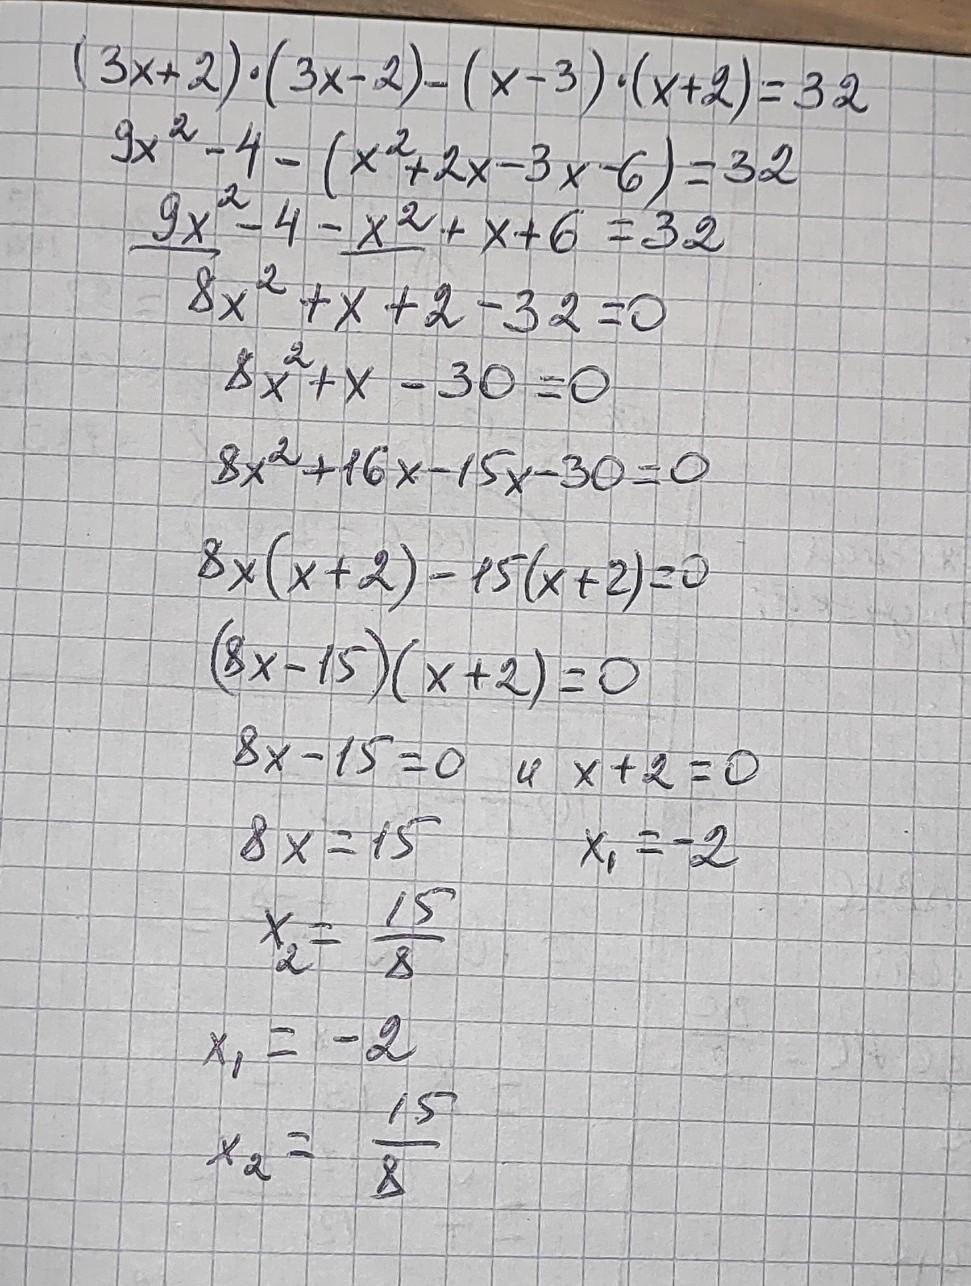 (3x+2)·(3x-2)-(x-3)·(x+2)=32
9x²-4-(x²+2x-3x-6)=32
9x²-4-x²+x+6=32
8x²+x+2-32=0
8x²+x-30=0
8x²+16x-15x-30=0
8x(x+2)-15(x+2)=0
(8x-15)(x+2)=0
8x-15=0 и x+2=0
8x=15 x₁=-2
x₂=15/8
x₁=-2
x₂=15/8